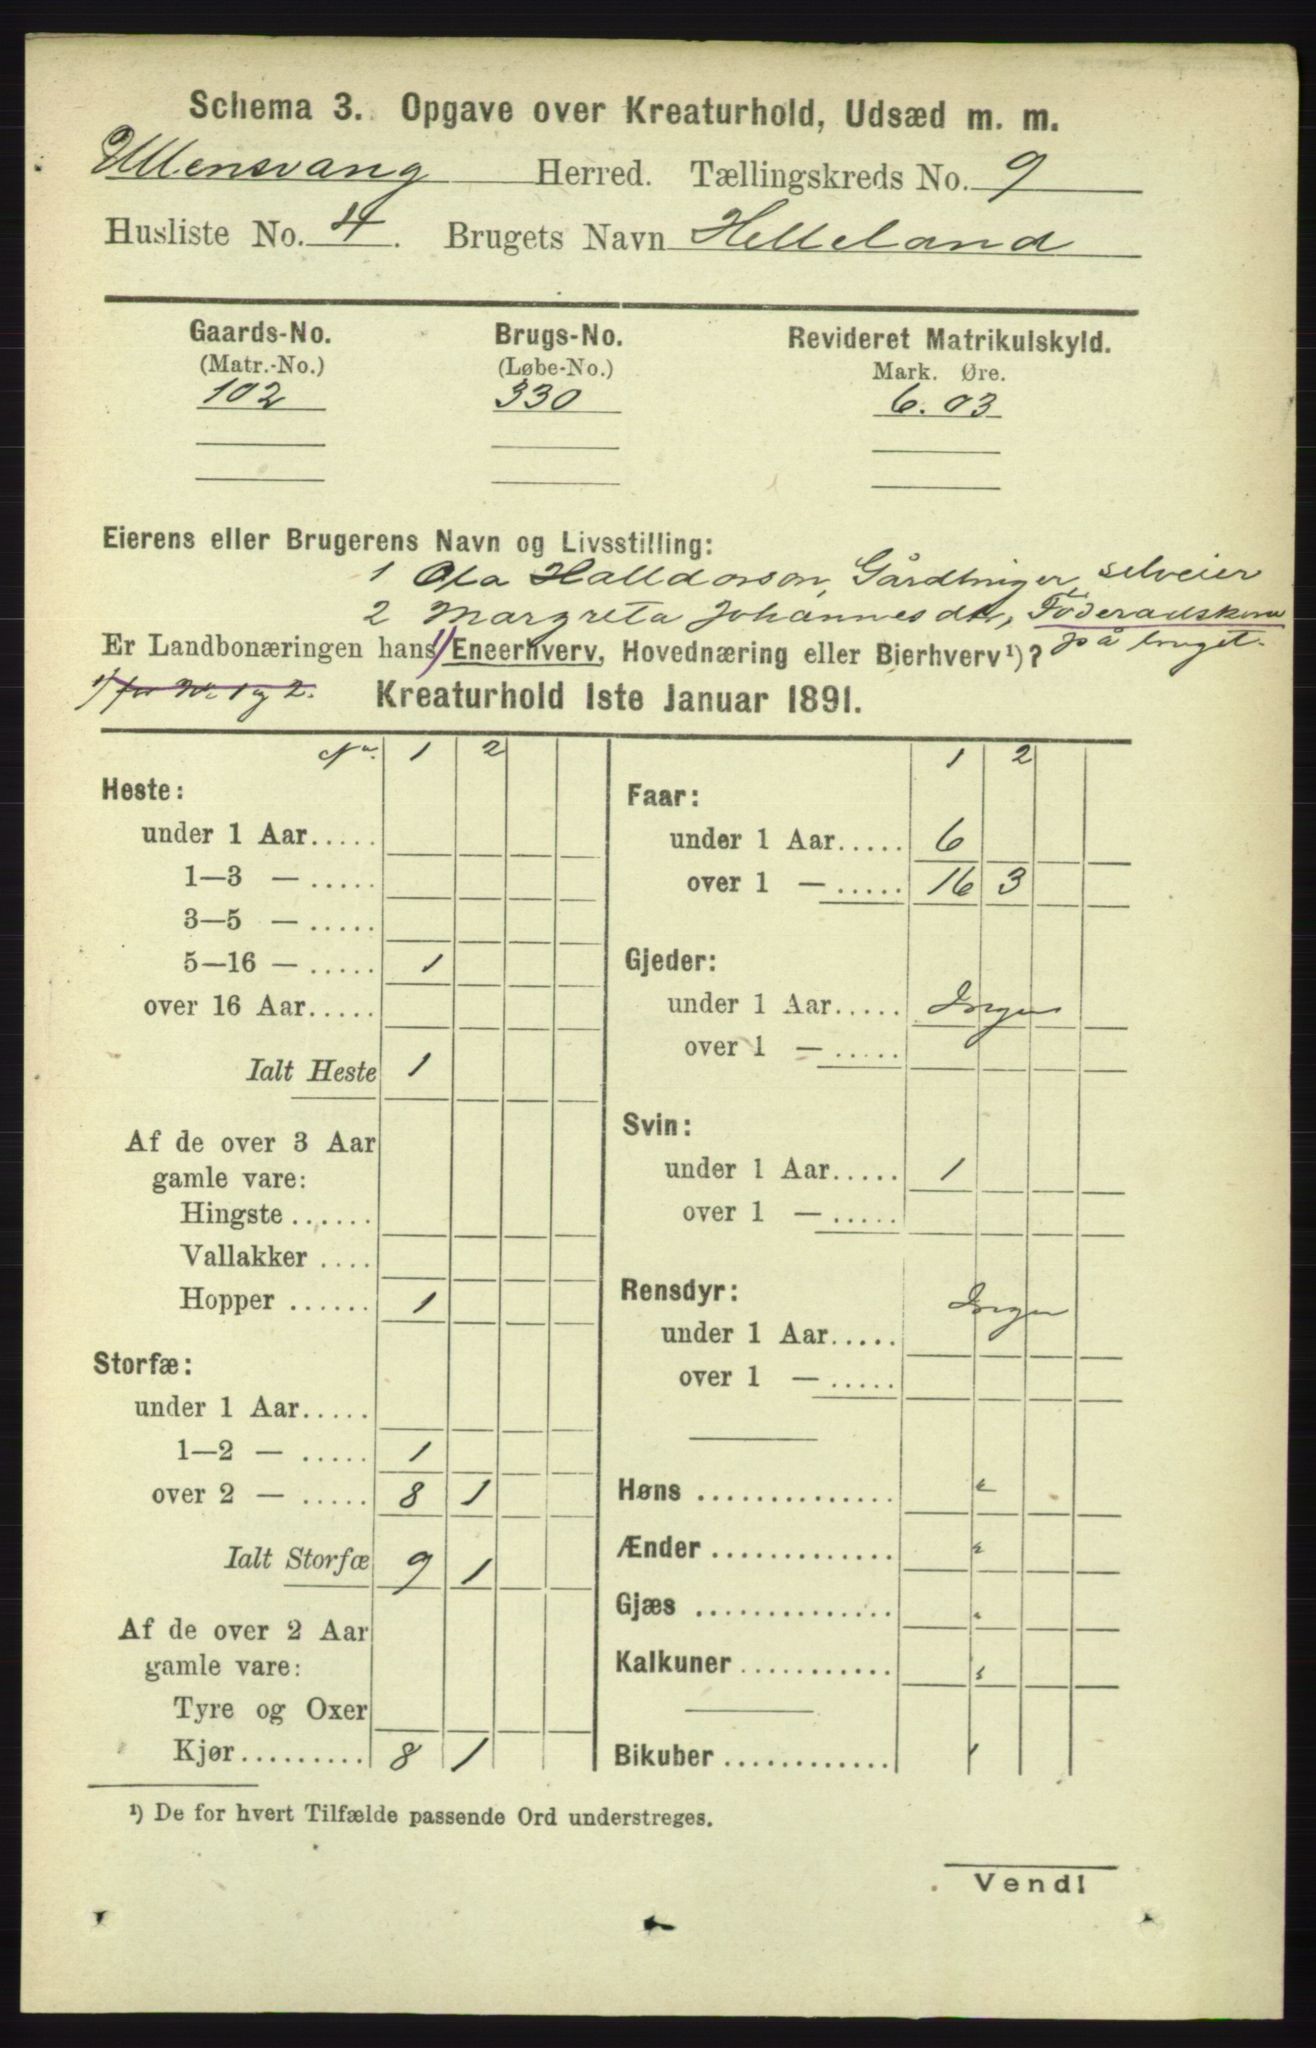 Schema 3. Opgave over Kreaturhold, Udsæd m. m.
Ullensvang Herred. Tællingskreds No. 9
Husliste No. 4. Brugets Navn Helleland
Gaards-No. Brugs-No. Revideret Matrikulskyld.
(Matr.-No.) (Løbe-No.) Mark. Øre.
102 330 6.03
Eierens eller Brugerens Navn og Livsstilling:
1 Ola Halldorson, Gårdbruger, selveier
2 Margreta Johannesdtr, Föderaadskone
på bruget.
Er Landbonæringen hans ¹) Eneerhverv, Hovednæring eller Bierhverv¹)?
¹) for No 1 og 2.
Kreaturhold 1ste Januar 1891.
No. 1 2
Heste:
under 1 Aar.....
1—3 — .....
3—5 — .....
5—16 — ..... 1
over 16 Aar.....
Ialt Heste 1
Af de over 3 Aar
gamle vare:
Hingste ......
Vallakker ....
Hopper ...... 1
Storfæ:
under 1 Aar.....
1—2 — ..... 1
over 2 — ..... 8 1
Ialt Storfæ 9 1
Af de over 2 Aar
gamle vare:
Tyre og Oxer
Kjør......... 8 1
1 2
Faar:
under 1 Aar..... 6
over 1 — ..... 16 3
Gjeder:
under 1 Aar..... Ingen
over 1 — .....
Svin:
under 1 Aar..... 1
over 1 — .....
Rensdyr: Ingen
under 1 Aar.....
over 1 — .....
Høns ..............
Ænder .............
Gjæs ..............
Kalkuner ...........
Bikuber .............
¹) De for hvert Tilfælde passende Ord understreges.
Vend!